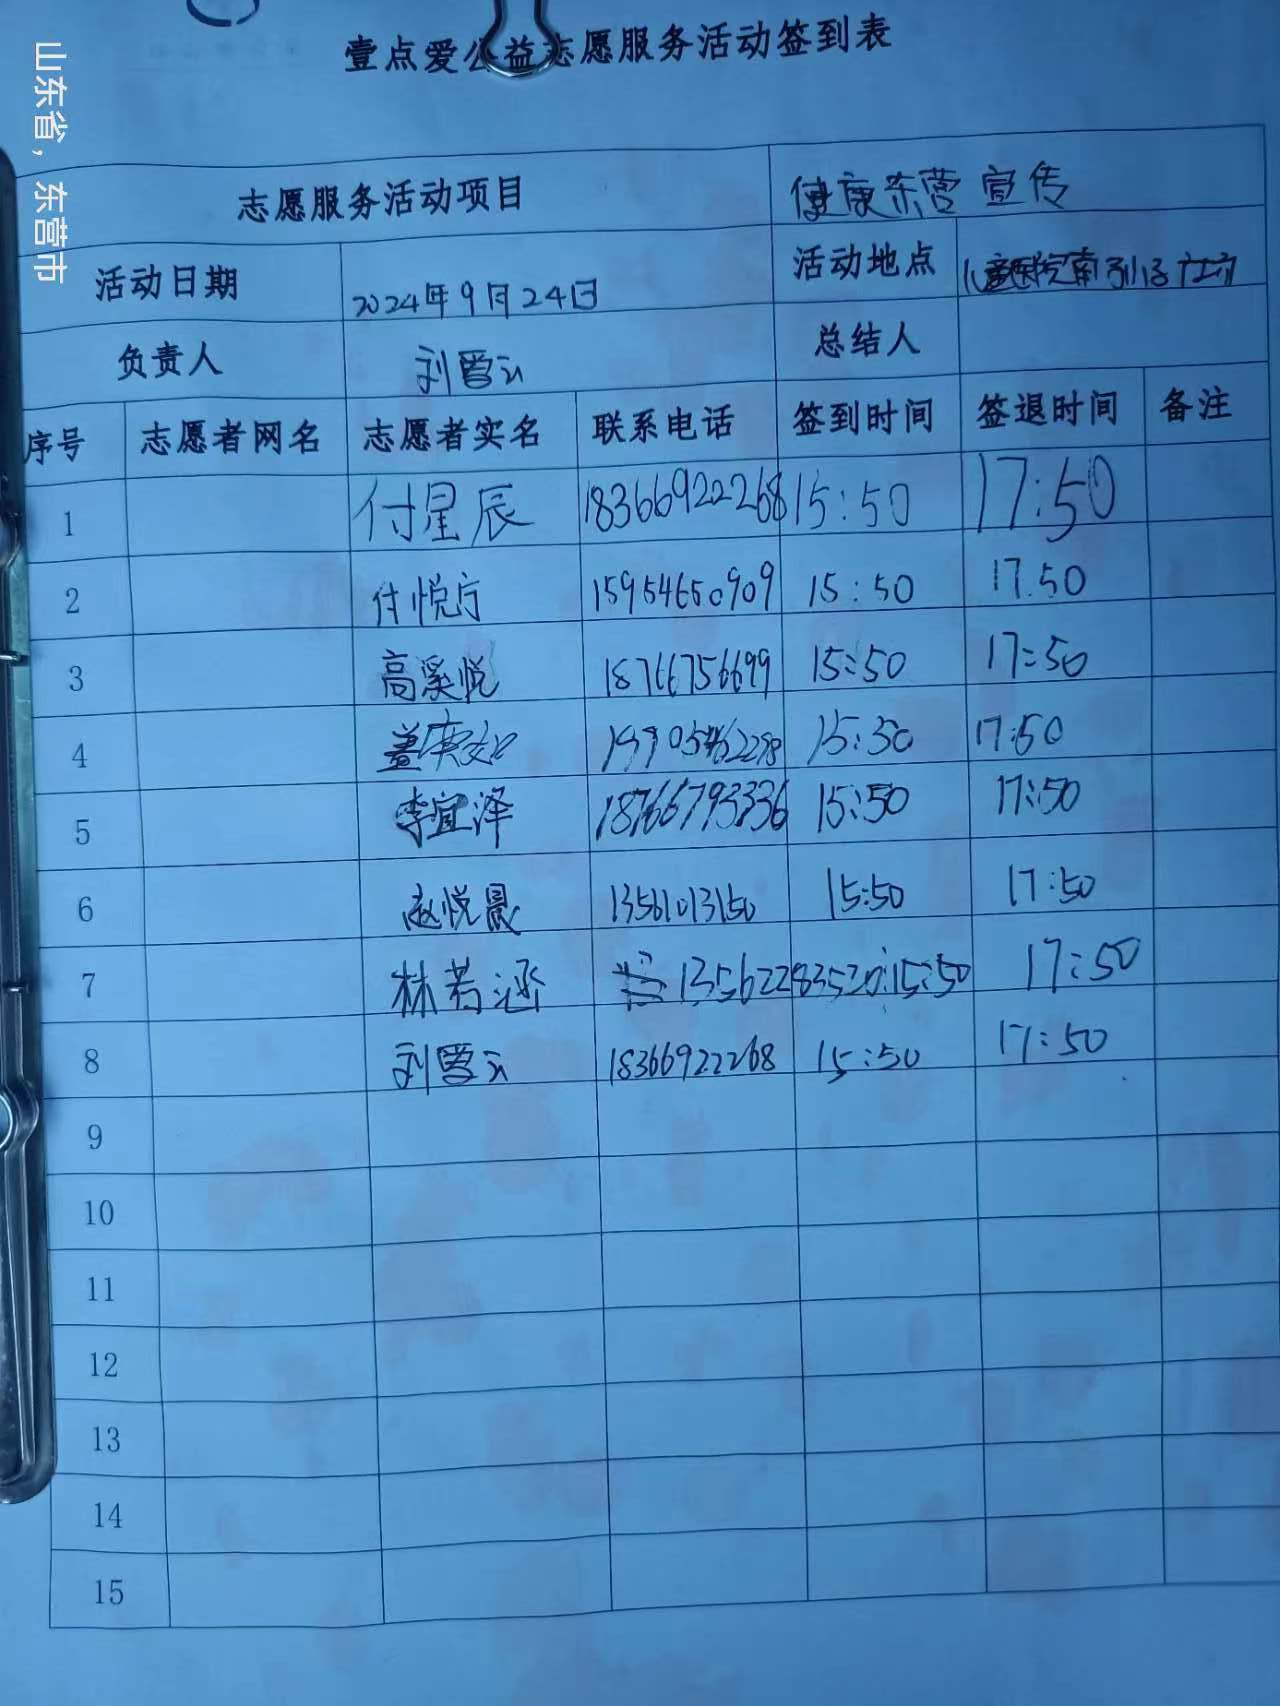 山东省，东营市
壹点爱公益志愿服务活动签到表
志愿服务活动项目 健康东营宣传
活动日期 2024年9月24日 活动地点 儿童医院南
负责人 刘爱云 总结人
序号 志愿者网名 志愿者实名 联系电话 签到时间 签退时间 备注
1 付星辰 18366922268 15:50 17:50
2 付悦 15954650909 15:50 17.50
3 高溪悦 18766756699 15:50 17:50
4 盖 15:50 17:50
5 李宜泽 18766793336 15:50 17:50
6 赵悦晨 13561013150 15:50 17:50
7 林若涵 13562283520 15:50 17:50
8 刘爱云 18366922268 15:50 17:50
9
10
11
12
13
14
15